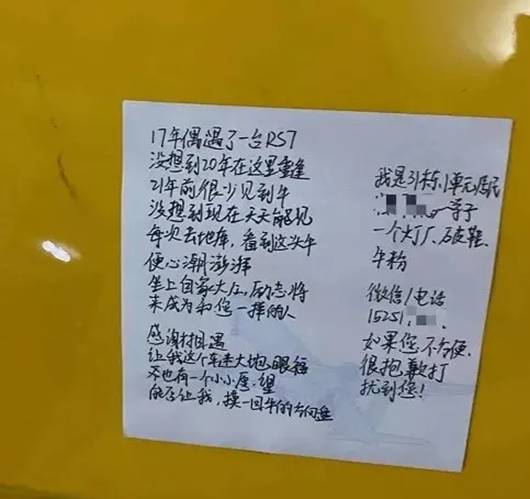 17年偶遇了一台RS7
没想到20年在这里重逢
21年前很少见到牛
没想到现在天天能见
每次去地库，看到这头牛
便心潮澎湃
坐上自家大众，励志将
来成为和您一样的人
感谢相遇
让我这个车迷大饱眼福
也有一个小小愿望
能否让我，摸一回牛的方向盘
我是31栋，1单元居民
一个灯厂、破鞋、
牛粉
微信/电话
15251
如果您不方便
很抱歉打
扰到您！